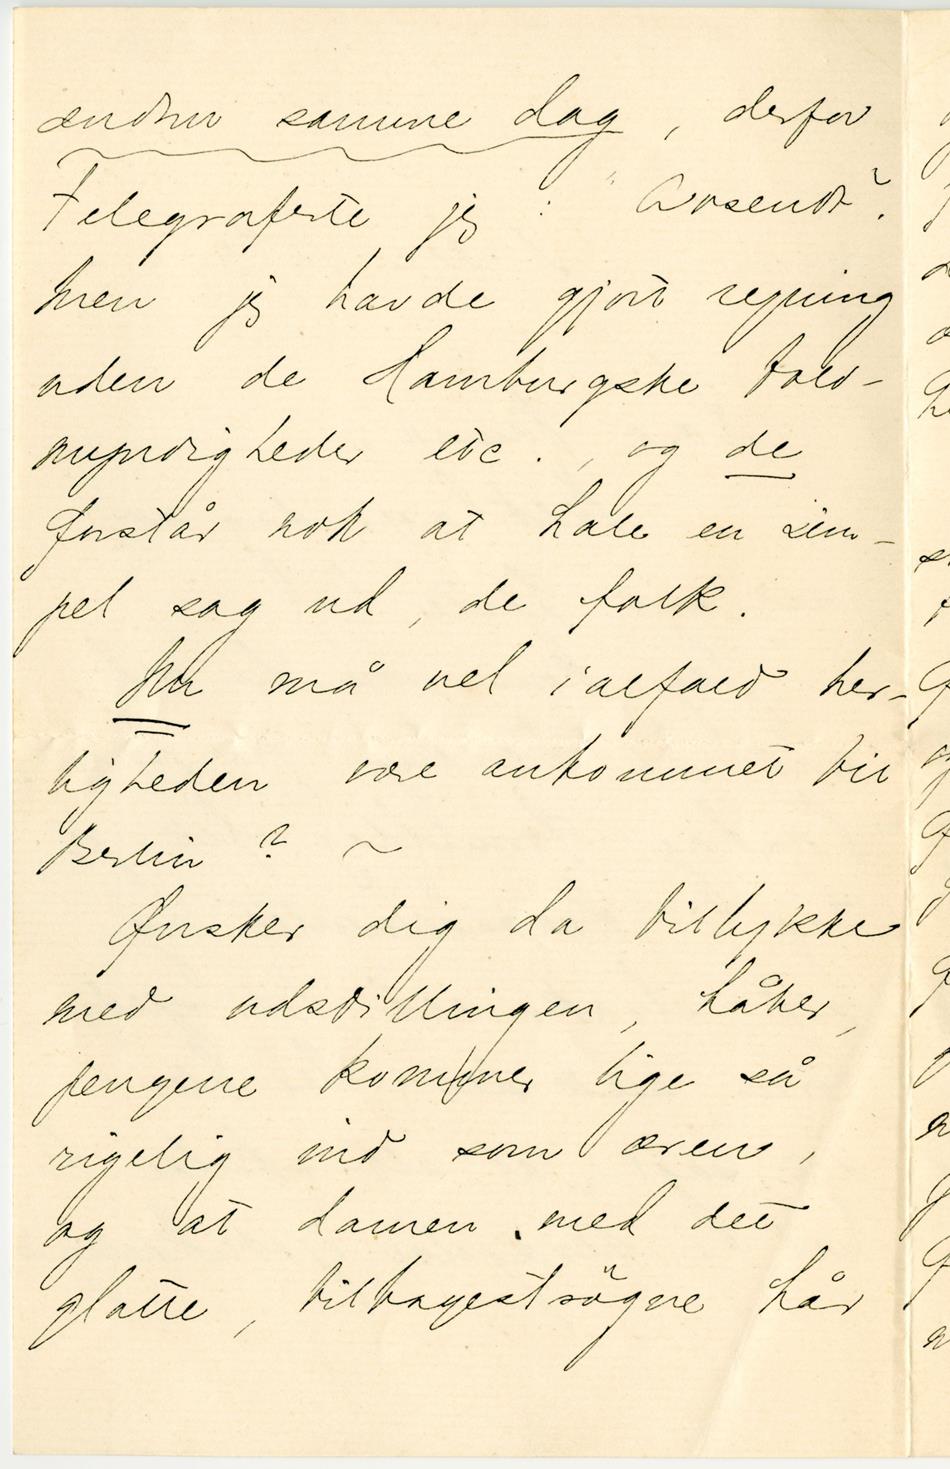 endnu samme dag, derfor
Telegraferte jeg: "Avsendt".
Men jeg havde gjort regning
uden de Hamburgske told-
myndigheder etc., og de
forstår nok at hale en sim-
pel sag ud, de folk.
Nu må vel ialfald her-
ligheden være ankommet til
Berlin? ~
Ønsker dig da tillykke
med udstillingen, håber,
pengene kommer lige så
rigelig ind som æren,
og at damen med det
glatte, tilbagestrøgne hår